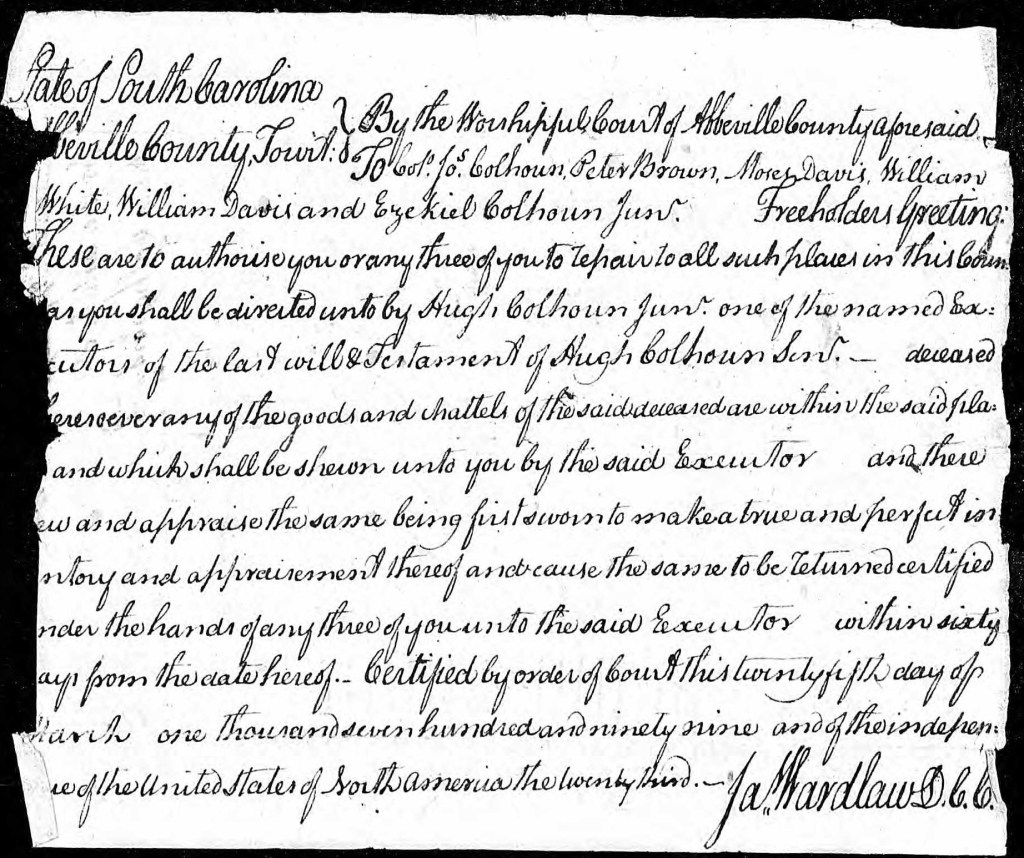 State of South Carolina
By the Worshipful Court of Abbeville County aforesaid
beville County, Towit:
To Col. Jos. Colhoun, Peter Brown, Moses Davis, William
White, William Davis and Ezekiel Colhoun Junr. Freeholders Greeting:
These are to authorise you or any three of you to repair to all such places in this Coun
as you shall be directed unto by Hugh Colhoun Junr. one of the named Ex=
cutors of the last will & Testament of Hugh Colhoun Senr. — deceased
heresoever any of the goods and chattels of the said deceased are within the said pla=
and which shall be shewn unto you by the said Executor and there
ew and appraise the same being first sworn to make a true and perfect in
ntory and appraisement thereof and cause the same to be returned certified
nder the hands of any three of you unto the said Executor within sixty
ays from the date hereof. — Certified by order of Court this twenty fifth day of
March one thousand seven hundred and ninety nine and of the indepen=
ce of the United States of North America the twenty third. —
Jas. Wardlaw D.C.C.